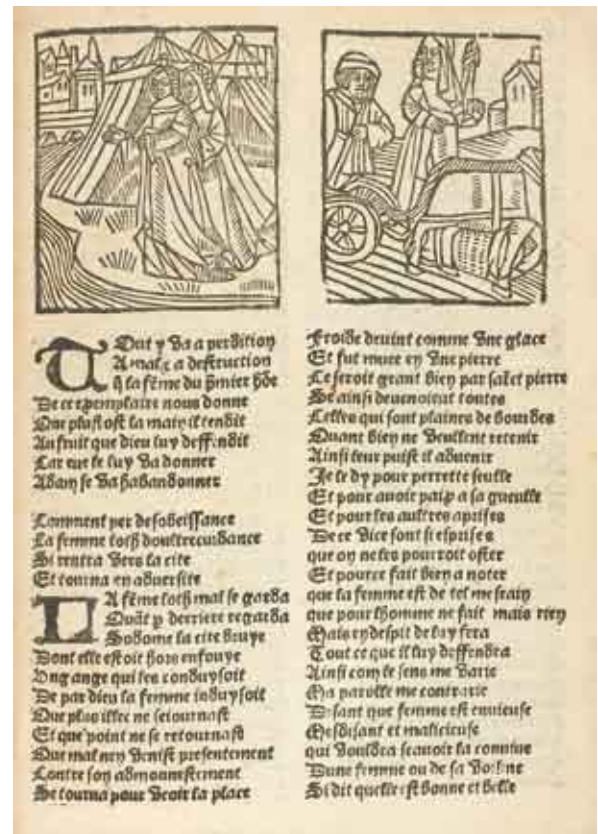 Tout y va a perdition
A mal & a destruction
q̄ la fēme du p̄mier hōe
De ce exemplaire nous donne
Que plustost la main il tendit
Au fruit que dieu luy deffendit
Car eue le luy va donner
Adam se va habandonner
Comment per desobeissance
La femme loth doultrecuidance
Si rentra vers la cite
Et tourna en aduersite
La fēme loth mal se garda
Quāt p derriere regarda
Sodome la cite bruye
Dont elle estoit hors enfouye
Ung ange qui les conduysoit
De par dieu la femme induysoit
Que plus illec ne seiournast
Et que point ne se retournast
Que mal nen venist presentement
Contre son admounestement
Se tourna pour veoir la place
Froide deuint comme vne glace
Et fut muee en vne pierre
Ce seroit grant bien par saīct pierre
Se ainsi deuenoient toutes
Celles qui sont plaines de bourdes
Quant bien ne veullent retenir
Ainsi leur puist il aduenir
Je le dy pour perrette seulle
Et pour auoir paix a sa gueulle
Et pour les aultres aprises
De ce vice sont si esprises
que on ne les pourroit oster
Et pource fait bien a noter
que la femme est de tel mesrain
que pour lhomme ne fait mais rien
Mais en despit de luy fera
Tout ce que il luy deffendra
Ainsi com le sens me varie
Ma parolle me contrarie
Disant que femme est enuieuse
Mesdisant et malicieuse
qui vouldra scauoir la conuine
Dune femme ou de sa voisine
Si dit quelle est bonne et belle